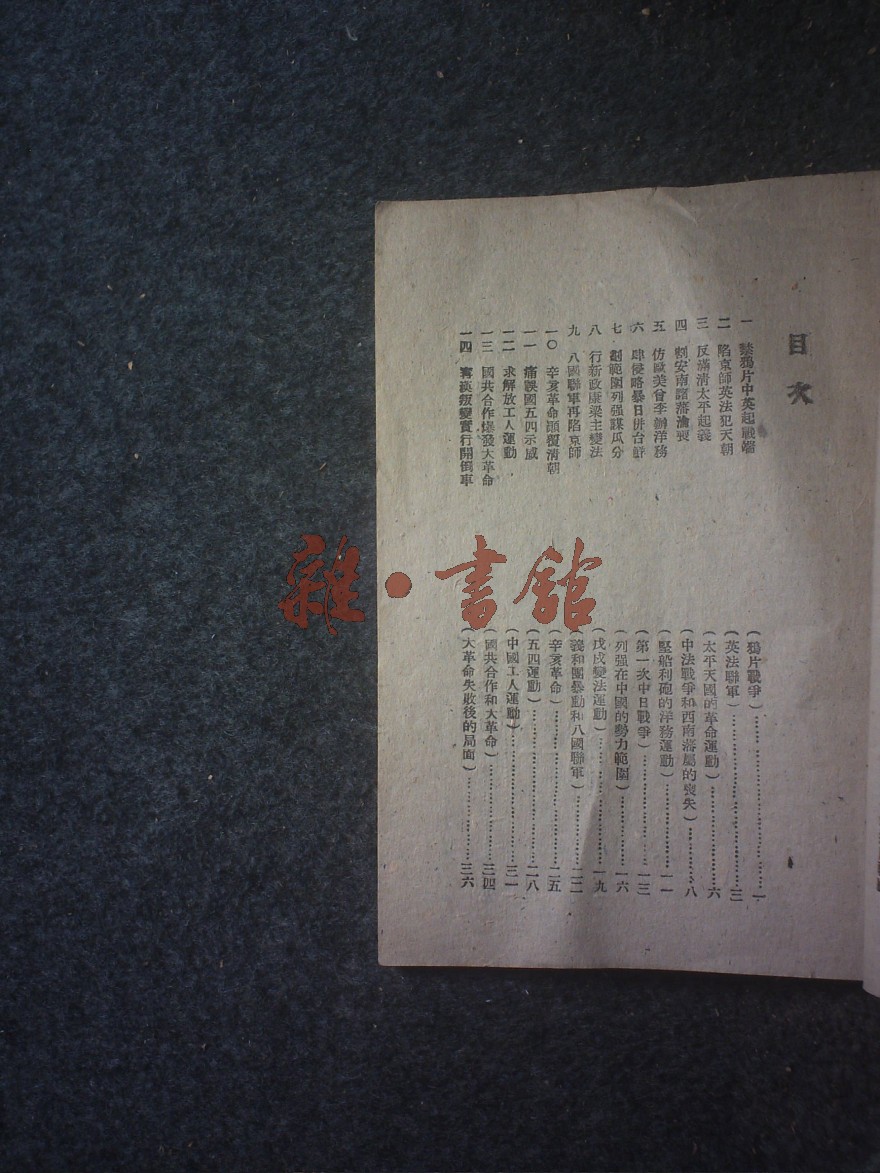 目次
一 禁鴉片中英起戰端（鴉片戰爭）……一
二 陷京師英法犯天朝（英法聯軍）……三
三 反滿清太平起義（太平天國的革命運動）……六
四 剩安南諸藩淪喪（中法戰爭和西南藩屬的喪失）……八
五 仿歐美曾李辦洋務（堅船利砲的洋務運動）……一一
六 肆侵略暴日併台鮮（第一次中日戰爭）……一三
七 劃範圍列强謀瓜分（列强在中國的勢力範圍）……一六
八 行新政康梁主變法（戊戌變法運動）……一九
九 八國聯軍再陷京師（義和團暴動和八國聯軍）……二二
一〇 辛亥革命顚覆清朝（辛亥革命）……二五
一一 痛誤國五四示威（五四運動）……二八
一二 求解放工人運動（中國工人運動）……三一
一三 國共合作爆發大革命（國共合作和大革命）……三四
一四 寗漢叛變實行開倒車（大革命失敗後的局面）……三六
雜·書館